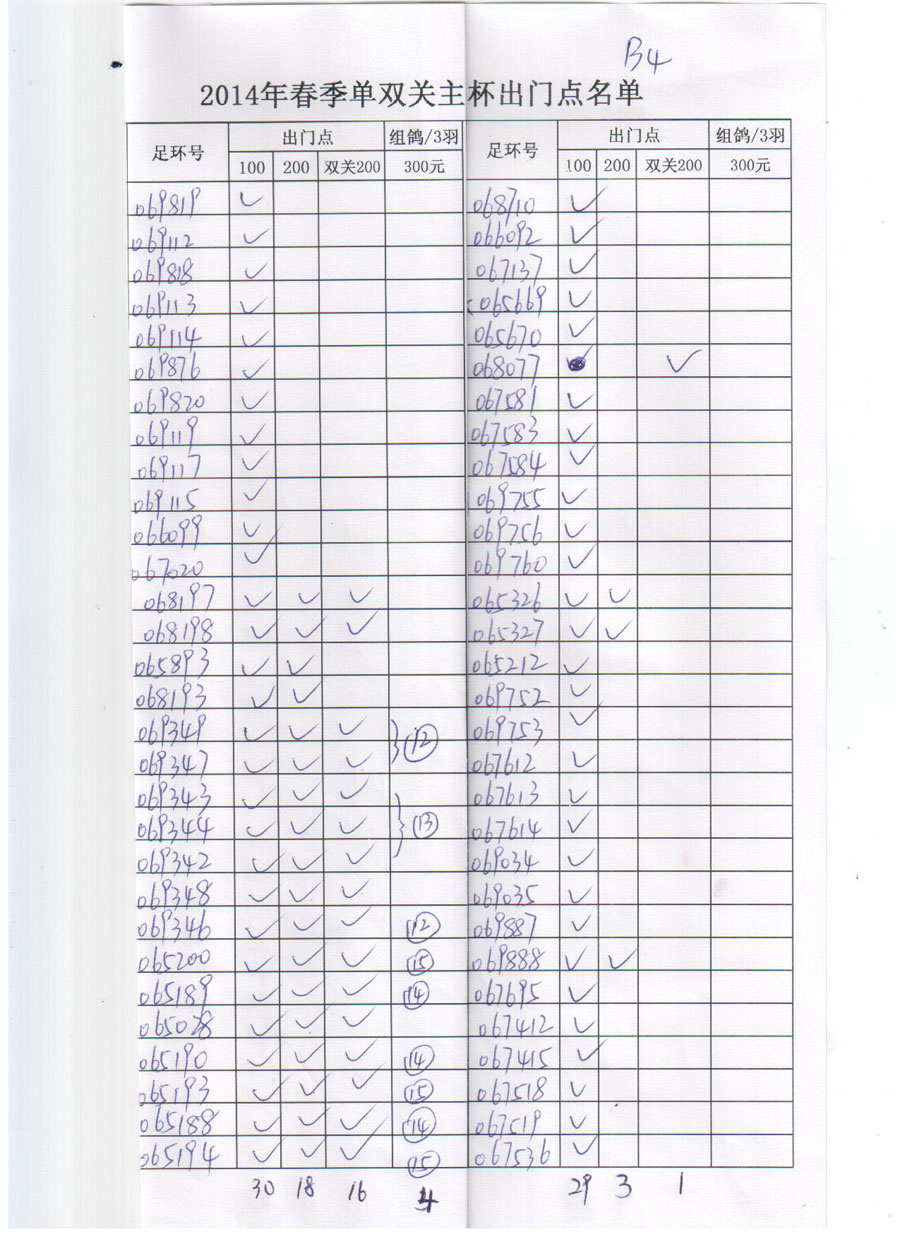 B4
2014年春季单双关主杯出门点名单
足环号 出门点 组鸽/3羽 足环号 出门点 组鸽/3羽
100 200 双关200 300元 100 200 双关200 300元
069819 ✓ 068710 ✓
069112 ✓ 066092 ✓
069818 ✓ 067137 ✓
069113 ✓ 065669 ✓
069114 ✓ 065670 ✓
069876 ✓ 068077 ✓
069820 ✓ 067581 ✓
069119 ✓ 067583 ✓
069117 ✓ 067584 ✓
069115 ✓ 069755 ✓
066099 ✓ 069756 ✓
067020 ✓ 069760 ✓
068197 ✓ ✓ ✓ 065326 ✓ ✓
068198 ✓ ✓ ✓ 065327 ✓ ✓
065893 ✓ ✓ 065212 ✓
068193 ✓ ✓ 069752 ✓
069349 ✓ ✓ ✓ ⑫ 069753 ✓
069347 ✓ ✓ ✓ 067612 ✓
069343 ✓ ✓ ✓ 067613 ✓
069344 ✓ ✓ ✓ ⑬ 067614 ✓
069342 ✓ ✓ ✓ 069034 ✓
069348 ✓ ✓ ✓ 069035 ✓
069346 ✓ ✓ ✓ ⑫ 069887 ✓
065200 ✓ ✓ ✓ ⑮ 069888 ✓ ✓
065189 ✓ ✓ ✓ ⑭ 067695 ✓
065028 ✓ ✓ ✓ 067412 ✓
065190 ✓ ✓ ✓ ⑭ 067415 ✓
065193 ✓ ✓ ✓ ⑮ 067518 ✓
065188 ✓ ✓ ✓ ⑭ 067519 ✓
065194 ✓ ✓ ✓ ⑮ 067536 ✓
30 18 16 4 29 3 1